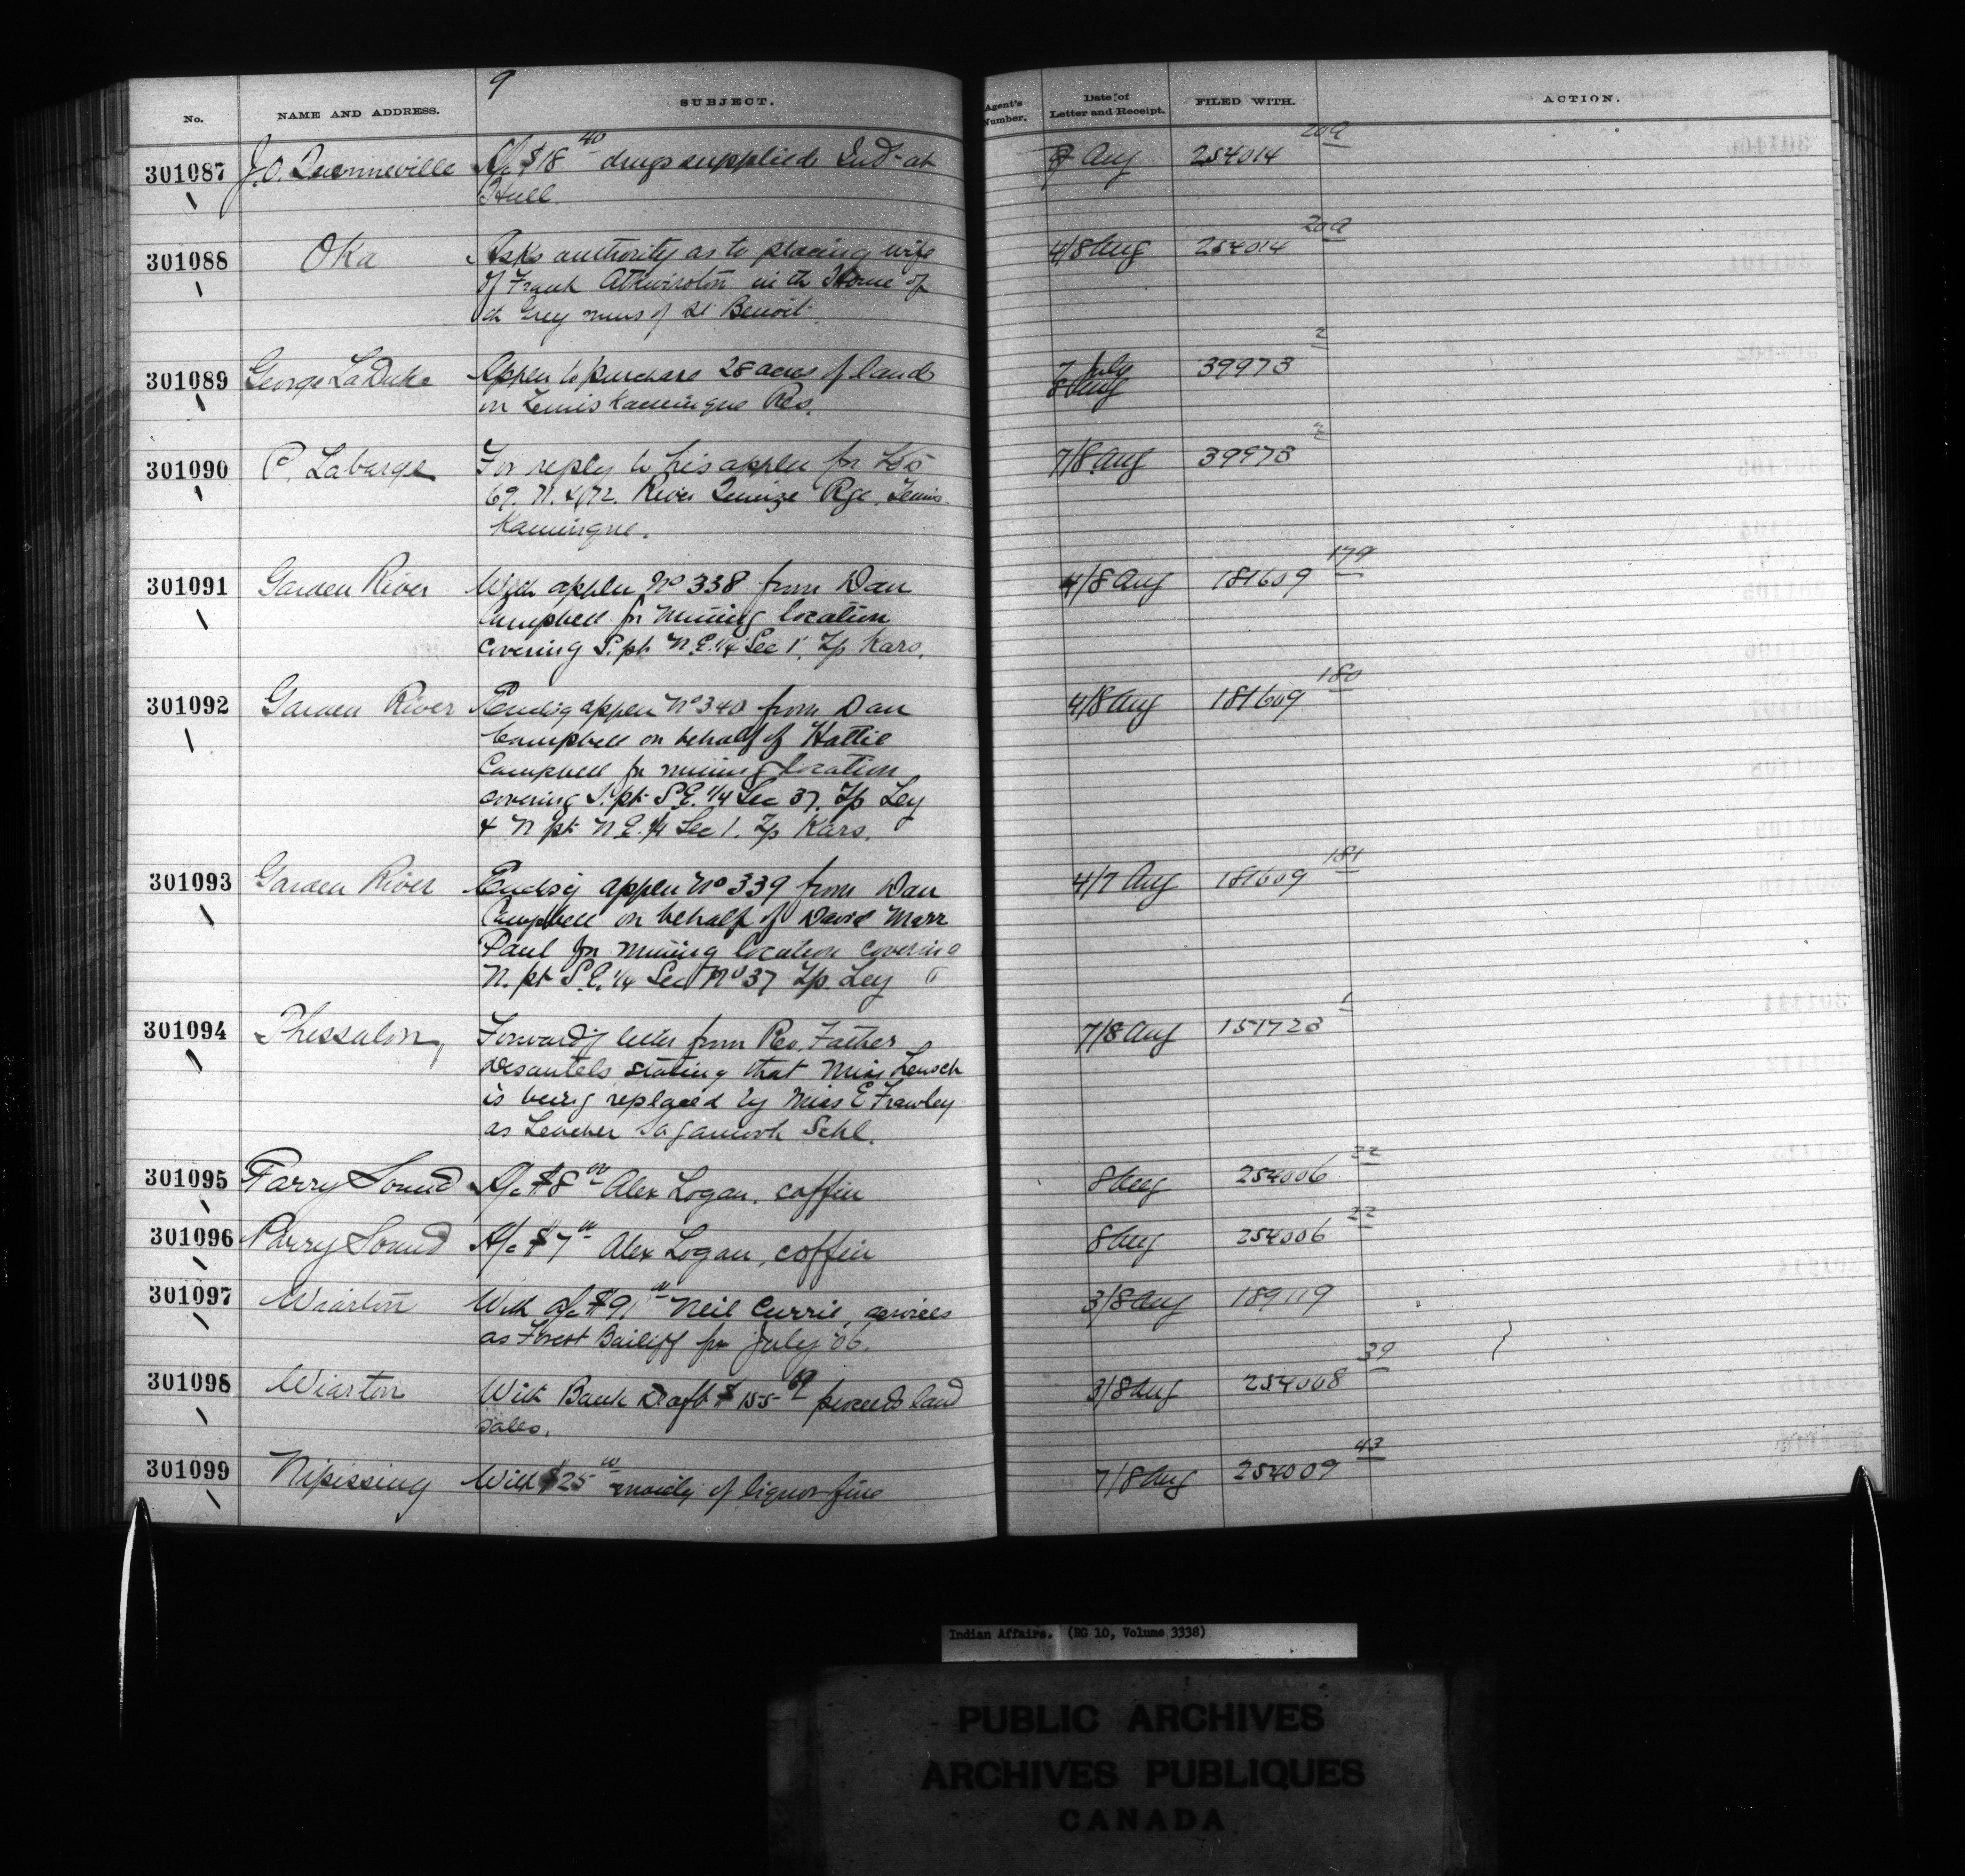 9
No. NAME AND ADDRESS. SUBJECT. Agent's Number. Date of Letter and Receipt. FILED WITH. ACTION.
301087 J.O. Quenneville A/c $18 40 drugs supplied Ind- at 8 Aug 254014 20a
Hull.
301088 Oka Asks authority as to placing wife 4/8 Aug 254014 20a
of Frank in the Home of
th Grey nuns of St Benoit.
301089 George LaDuke Applcn to purchase 28 acres of land 7 July 39973 2
on Temiskamingue Res. 8 Aug
301090 C. Labarge For reply to his applcn for Lots 7/8 Aug 39973 2
69. N. 72. River Quinze Rge. Temis-
Kamingue.
301091 Garden River With applcn No 338 from Dan 4/8 Aug 181609 179
Campbell for mining location
covering S. pt N.E. 1/4 Sec 1. Tp Kars.
301092 Garden River Encdig applcn No 340 from Dan 4/8 Aug 181609 180
Campbell on behalf of Hattie
Campbell for mining location
covering S. pt S.E. 1/4 Sec 37. Tp Ley
& N pt N.E. 1/4 Sec 1. Tp Kars.
301093 Garden River Enclsg applcn No 339 from Dan 4/7 Aug 181609 181
Campbell on behalf of David Marr
Paul for mining location covering
N. pt S.E. 1/4 Sec No 37 Tp. Ley
301094 Thessalon, Forwardg letter from Rev. Father 7/8 Aug 151723 1
Desautels stating that Miss Lensch
is being replaced by Miss E Frawley
as Teacher Sagamook Schl.
301095 Parry Sound A/c $8 00 Alex Logan, coffin 8 Aug 254006 22
301096 Parry Sound A/c $7 00 Alex Logan, coffin 8 Aug 254006 22
301097 Wiarton With a/c $91. 00 Neil Currie, services 3/8 Aug 189119
as Forest Bailiff for July '06.
301098 Wiarton With Bank Draft $155 69 proceeds land 3/8 Aug 254008 39
sales.
301099 Nipissing With $25 00 moiety of liquor fine 7/8 Aug 254009 43
Indian Affairs. (RG 10, Volume 3338)
PUBLIC ARCHIVES
ARCHIVES PUBLIQUES
CANADA